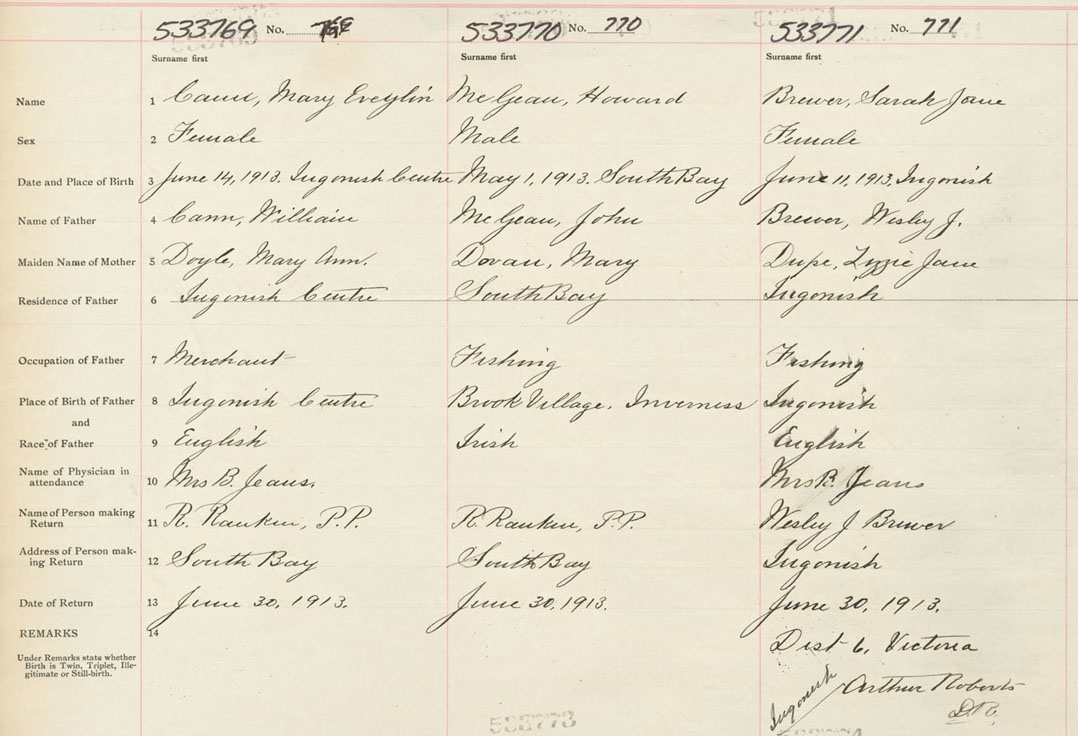 533769 No. 769 533770 No. 770 533771 No. 771
Surname first Surname first Surname first
Name 1 Cann, Mary Eveylin McGean, Howard Brewer, Sarah Jane
Sex 2 Female Male Female
Date and Place of Birth 3 June 14, 1913. Ingonish Centre May 1, 1913. South Bay June 11, 1913, Ingonish
Name of Father 4 Cann, William McGean, John Brewer, Wesley J.
Maiden Name of Mother 5 Doyle, Mary Ann. Dovan, Mary Dupe, Lizzie Jane
Residence of Father 6 Ingonish Centre South Bay Ingonish
Occupation of Father 7 Merchant Fishing Fishing
Place of Birth of Father 8 Ingonish Centre Brook Village, Inverness Ingonish
and
Race of Father 9 English Irish English
Name of Physician in
attendance 10 Mrs B. Jeans. Mrs B. Jeans
Name of Person making
Return 11 R. Rankin, P.P. R. Rankin, P.P. Wesley J Brewer
Address of Person mak-
ing Return 12 South Bay South Bay Ingonish
Date of Return 13 June 30, 1913. June 30, 1913. June 30, 1913.
REMARKS 14 Dist 6, Victoria
Under Remarks state whether
Birth is Twin, Triplet, Ille-
gitimate or Still-birth.
Ingonish Arthur Roberts
D.R.
533773